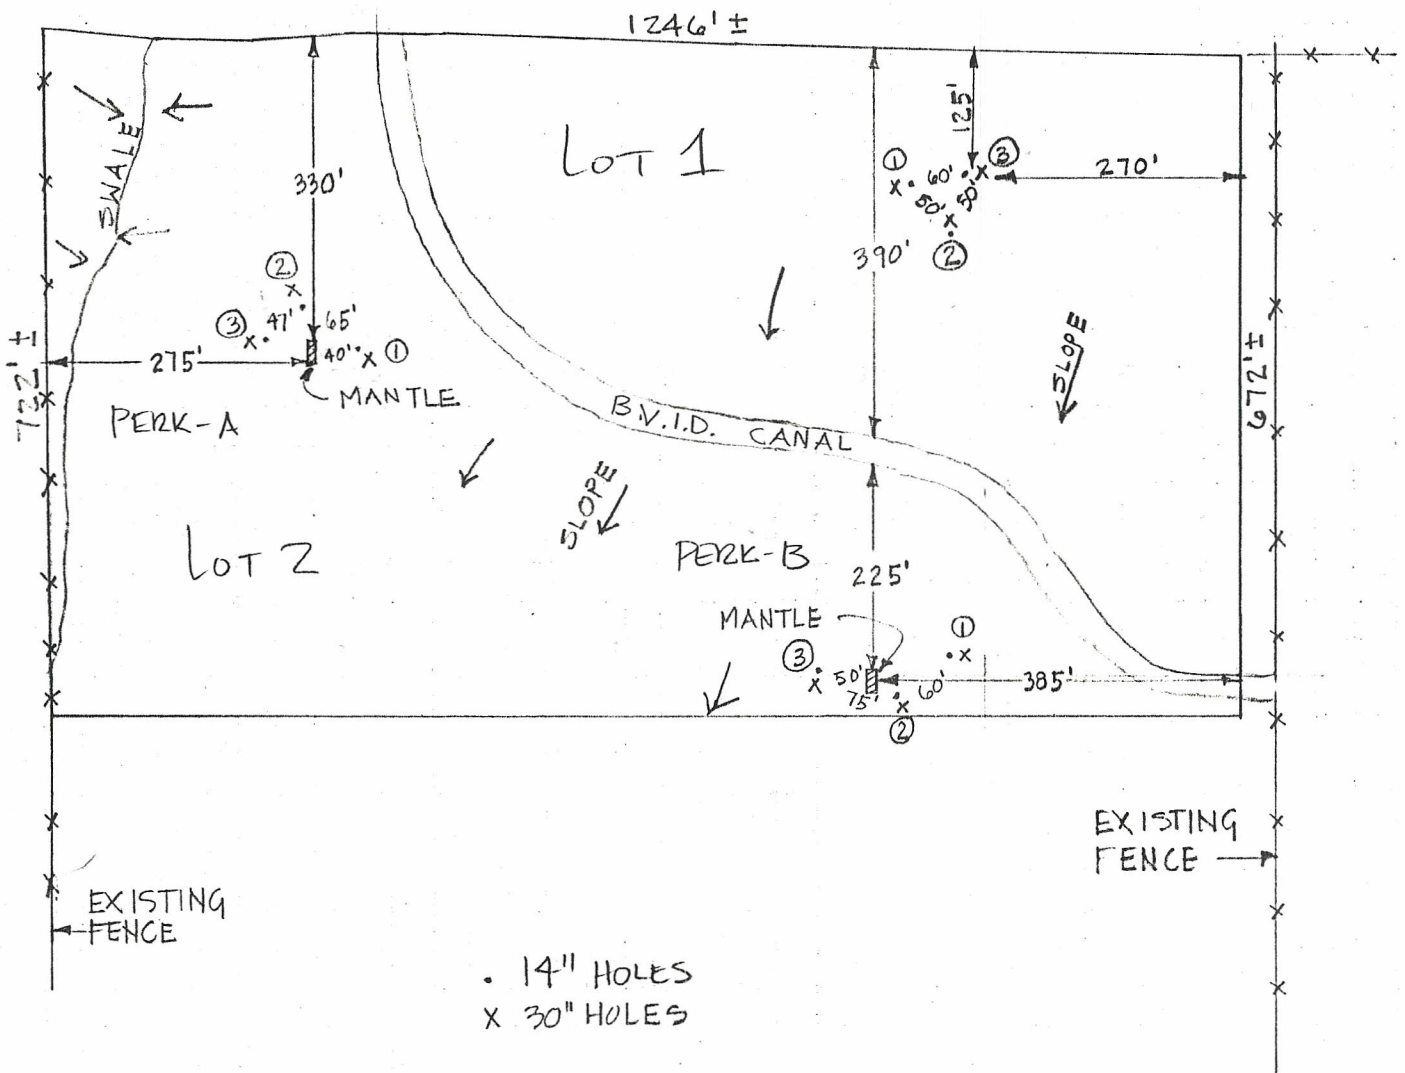 1246' ±
SWALE
330'
LOT 1
125'
①
60'
③
50'
50'
②
270'
390'
②
③
47'
65'
40'
①
275'
MANTLE
722' ±
PERK-A
SLOPE
672' ±
B.V.I.D. CANAL
SLOPE
LOT 2
PERK-B
225'
MANTLE
①
③
50'
75'
60'
②
385'
EXISTING
FENCE
EXISTING
FENCE
. 14" HOLES
X 30" HOLES